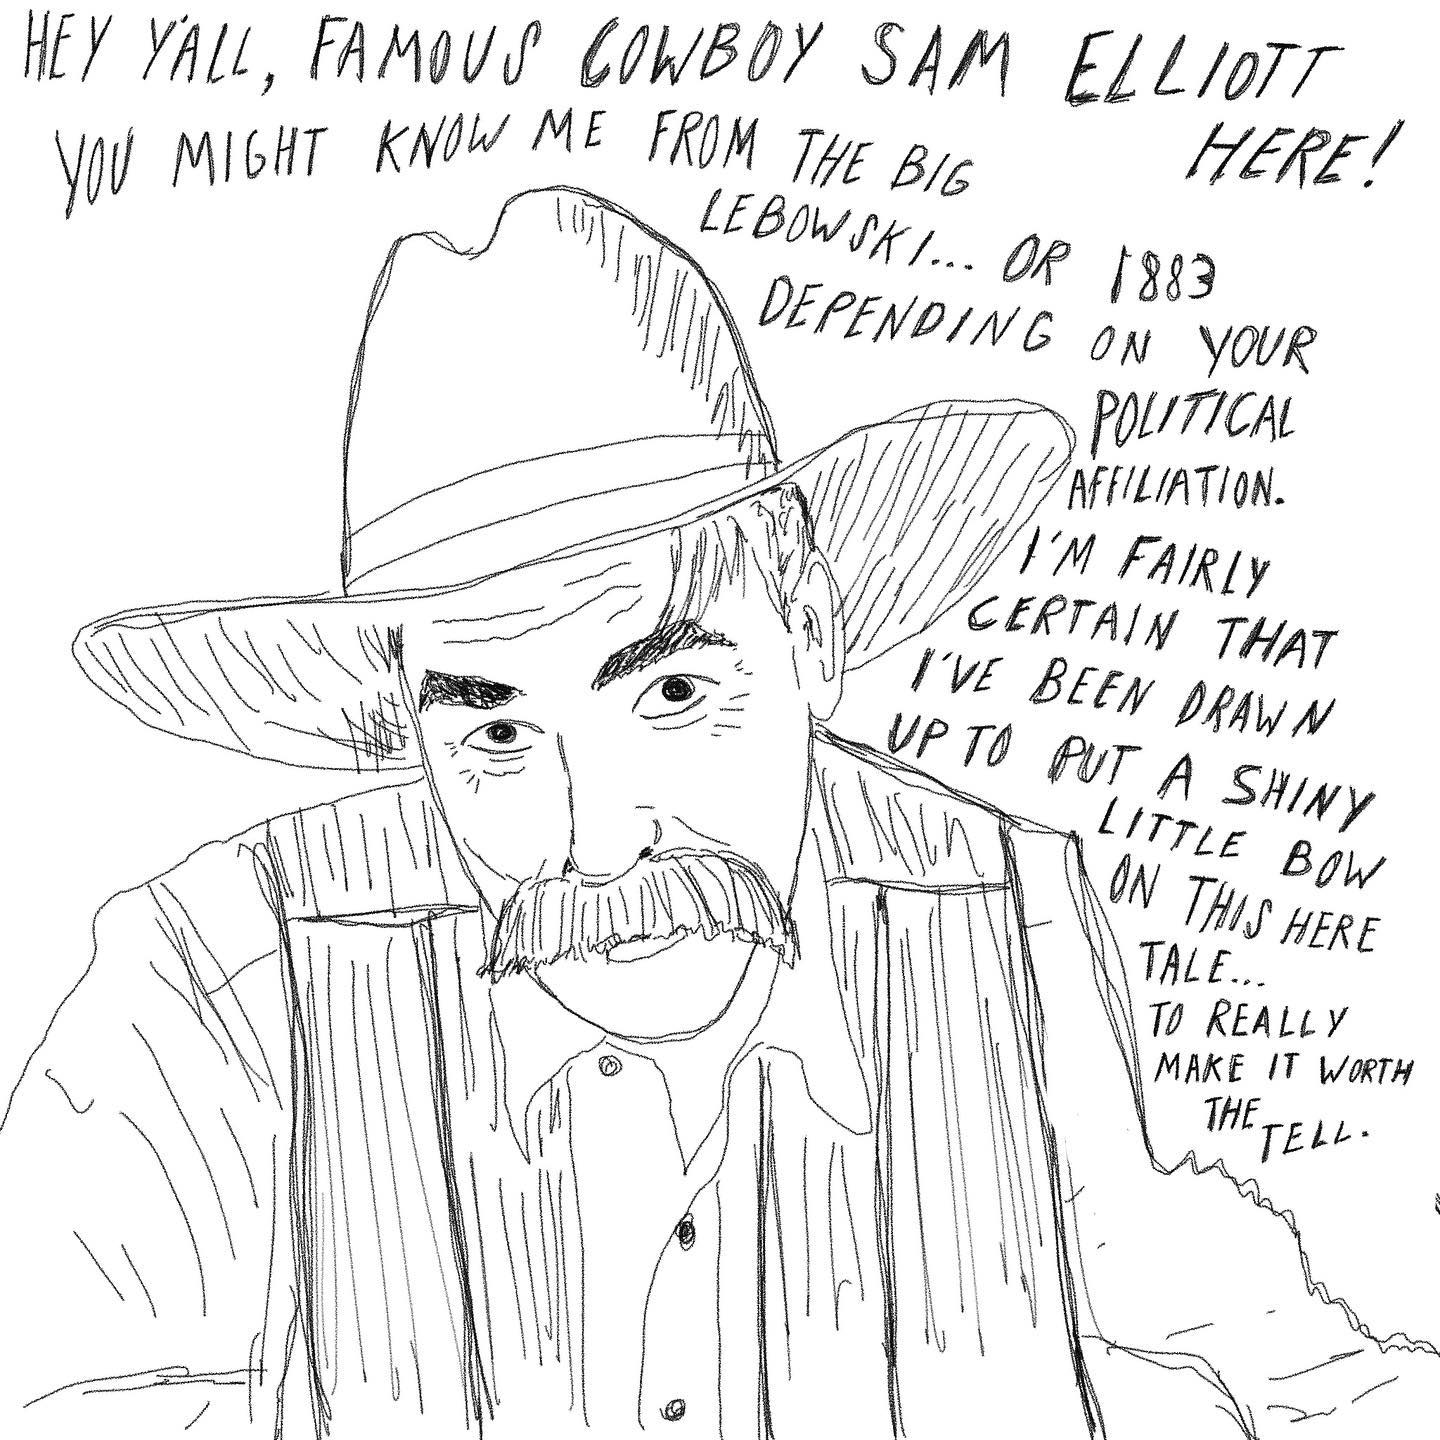 HEY Y'ALL, FAMOUS COWBOY SAM ELLIOTT
HERE!
YOU MIGHT KNOW ME FROM THE BIG
LEBOWSKI... OR 1883
DEPENDING ON YOUR
POLITICAL
AFFILIATION.
I'M FAIRLY
CERTAIN THAT
I'VE BEEN DRAWN
UP TO PUT A SHINY
LITTLE BOW
ON THIS HERE
TALE...
TO REALLY
MAKE IT WORTH
THE
TELL.